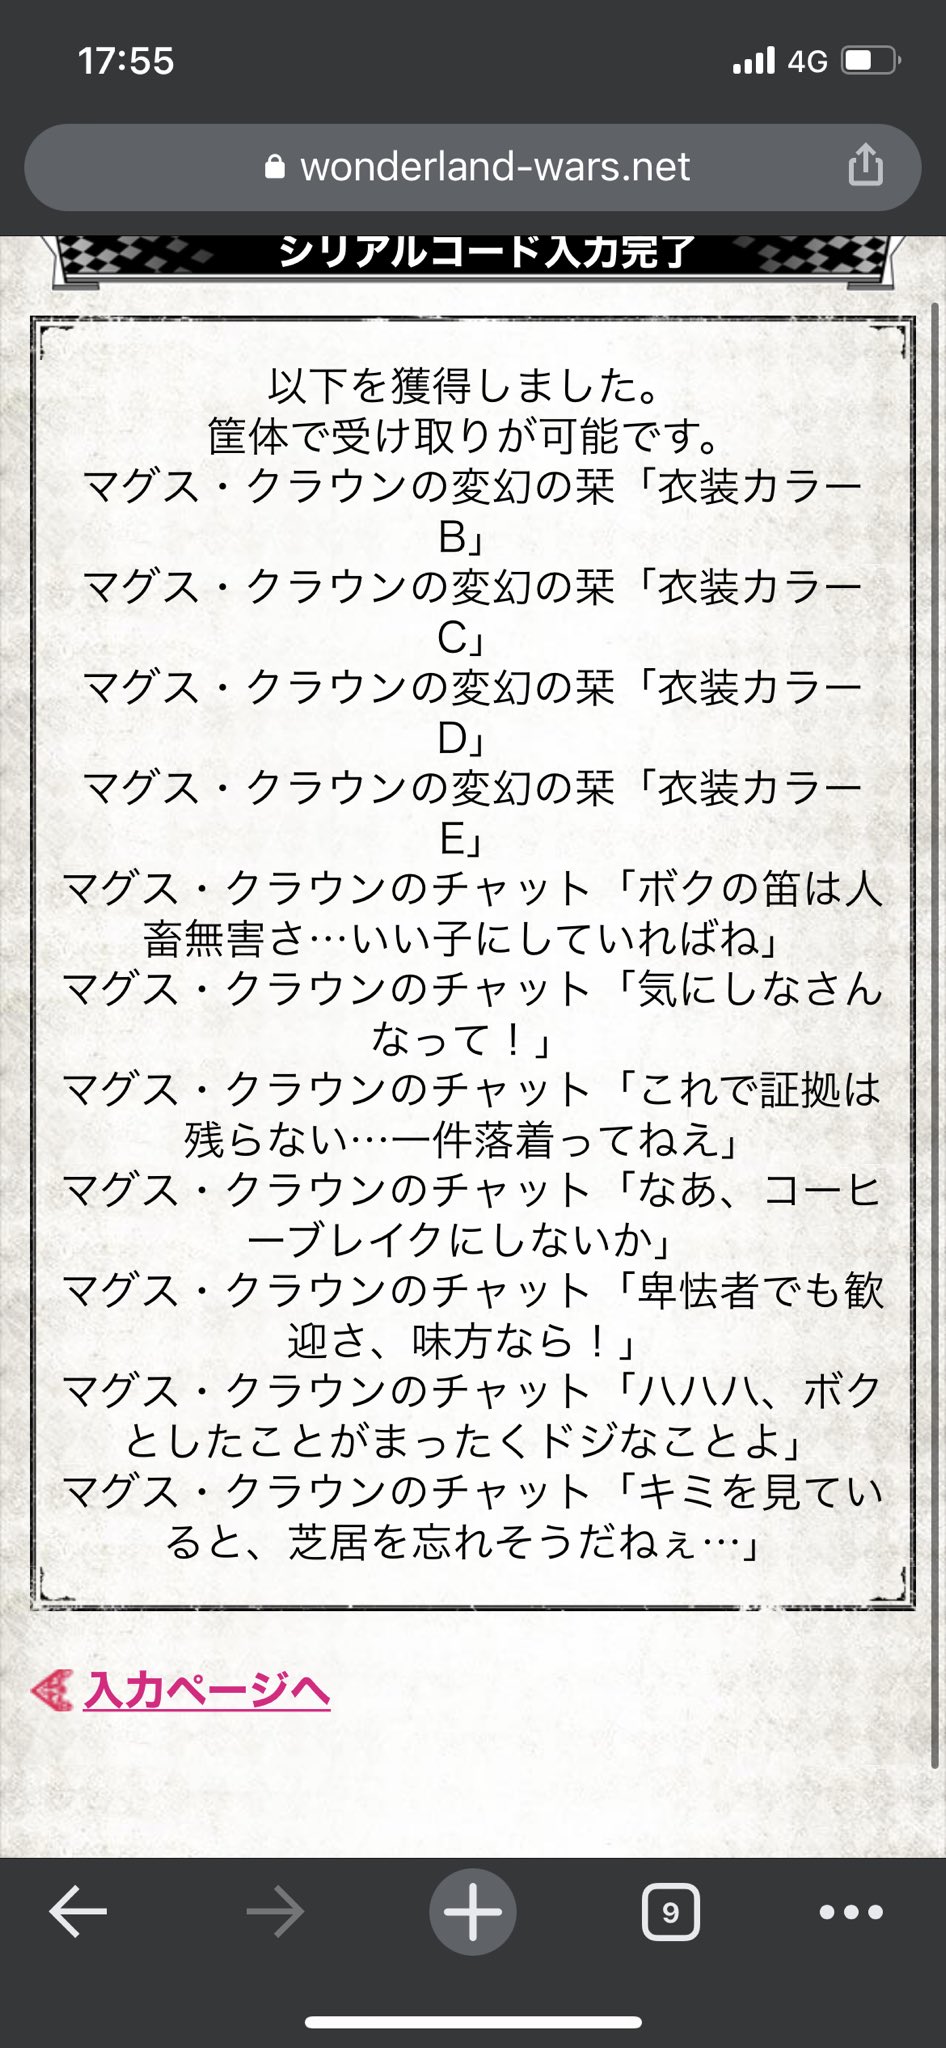 17:55
4G
wonderland-wars.net
シリアルコード入力完了
以下を獲得しました。
筐体で受け取りが可能です。
マグス・クラウンの変幻の栞「衣装カラー
B」
マグス・クラウンの変幻の栞「衣装カラー
C」
マグス・クラウンの変幻の栞「衣装カラー
D」
マグス・クラウンの変幻の栞「衣装カラー
E」
マグス・クラウンのチャット「ボクの笛は人
畜無害さ…いい子にしていればね」
マグス・クラウンのチャット「気にしなさん
なって！」
マグス・クラウンのチャット「これで証拠は
残らない…一件落着ってねえ」
マグス・クラウンのチャット「なあ、コーヒ
ーブレイクにしないか」
マグス・クラウンのチャット「卑怯者でも歓
迎さ、味方なら！」
マグス・クラウンのチャット「ハハハ、ボク
としたことがまったくドジなことよ」
マグス・クラウンのチャット「キミを見てい
ると、芝居を忘れそうだねぇ…」
入力ページへ
9